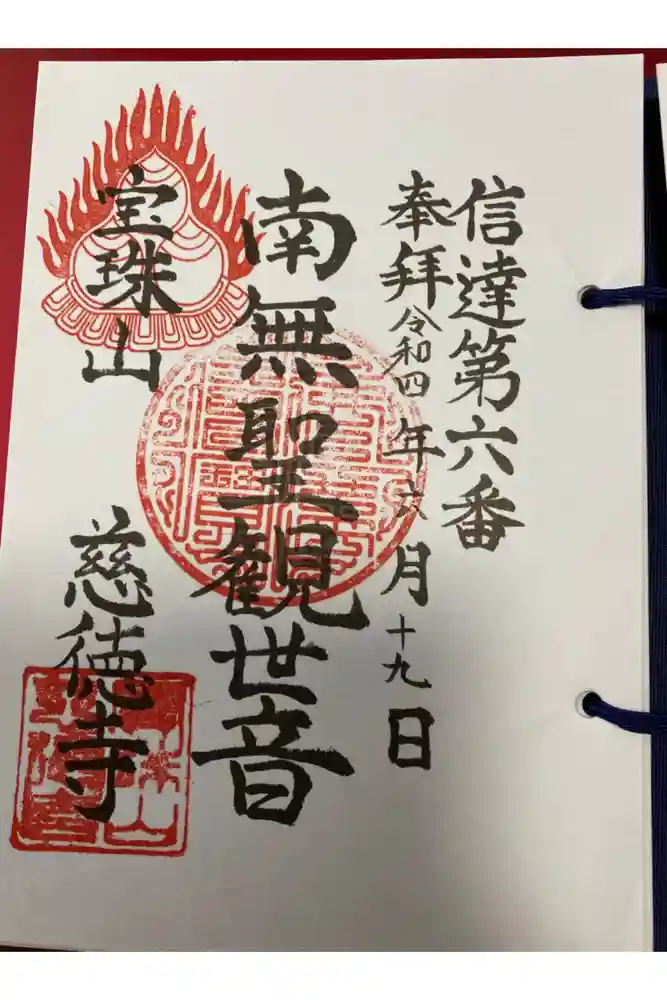 信達第六番
奉拜令和四年六月十九日
南無聖観世音
宝珠山
慈徳寺